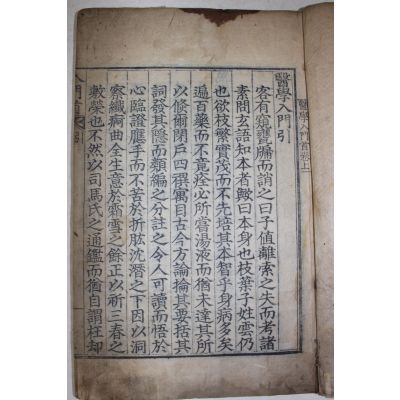 醫學入門首卷上
醫學入門引
客有窺甕牖而誚之曰子值離索之失而考諸
素問玄語知本者歟曰本身也枝葉子姓雲仍
也欲枝繁實茂而不先培其本智乎身病多矣
遍百藥而不竟痊必所嘗湯液而猶未達其所
以脩爾閉戶四禩寓目古今方論掄其要括其
詞發其懸而類編之分註之令人可讀而悟於
心臨證應手而不苦於折肱沈潛之下因以洞
察纖痾曲全生意於霜雪之餘正以祈三春之
敷榮也不然以司馬氏之通鑑而猶自謂枉却
入門首 引